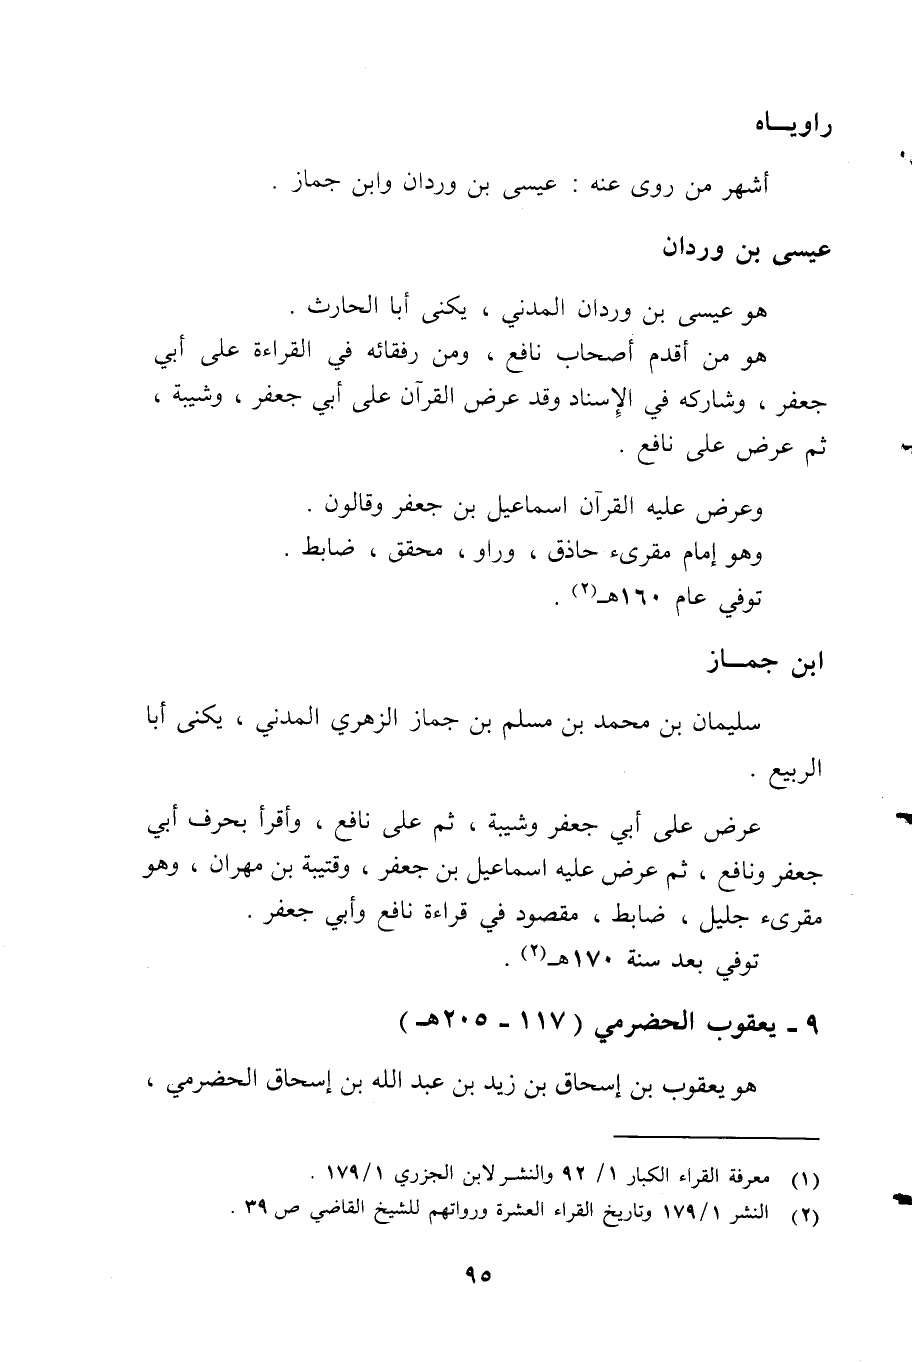 راويـاه
أشهر من روى عنه : عيسى بن وردان وابن جماز .
عيسى بن وردان
هو عيسى بن وردان المدني ، يكنى أبا الحارث .
هو من أقدم أصحاب نافع ، ومن رفقائه في القراءة على أبي
جعفر ، وشاركه في الإسناد وقد عرض القرآن على أبي جعفر ، وشيبة ،
ثم عرض على نافع .
وعرض عليه القرآن اسماعيل بن جعفر وقالون .
وهو إمام مقرىء حاذق ، وراو ، محقق ، ضابط .
توفي عام ١٦٠هـ(٢) .
ابن جمـاز
سليمان بن محمد بن مسلم بن جماز الزهري المدني ، يكنى أبا
الربيع .
عرض على أبي جعفر وشيبة ، ثم على نافع ، وأقرأ بحرف أبي
جعفر ونافع ، ثم عرض عليه اسماعيل بن جعفر ، وقتيبة بن مهران ، وهو
مقرىء جليل ، ضابط ، مقصود في قراءة نافع وأبي جعفر .
توفي بعد سنة ١٧٠هـ(٢) .
٩ ـ يعقوب الحضرمي ( ١١٧ ـ ٢٠٥هـ )
هو يعقوب بن إسحاق بن زيد بن عبد الله بن إسحاق الحضرمي ،
(١) معرفة القراء الكبار ١/ ٩٢ والنشر لابن الجزري ١/١٧٩ .
(٢) النشر ١/١٧٩ وتاريخ القراء العشرة ورواتهم للشيخ القاضي ص ٣٩ .
٩٥